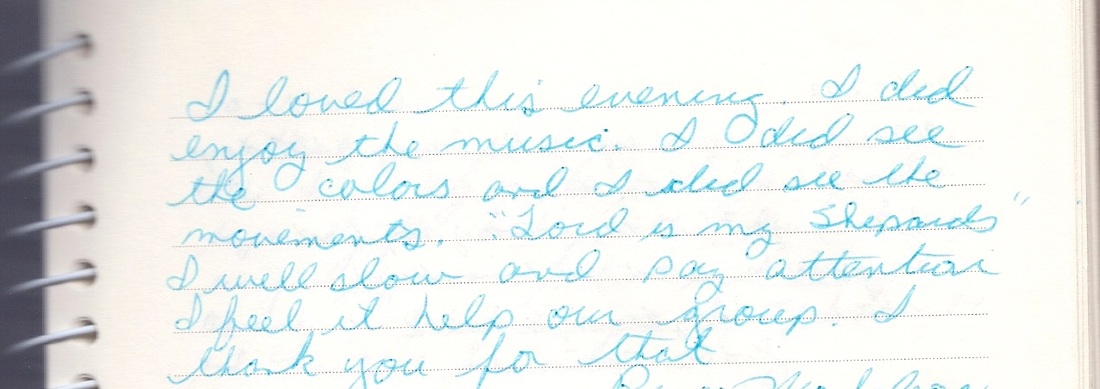 I loved this evening. I did
enjoy the music. I did see
the colors and I did see the
movements. "Lord is my Shepards"
I well slow and pay attention
I feel it help our group. I
thank you for that